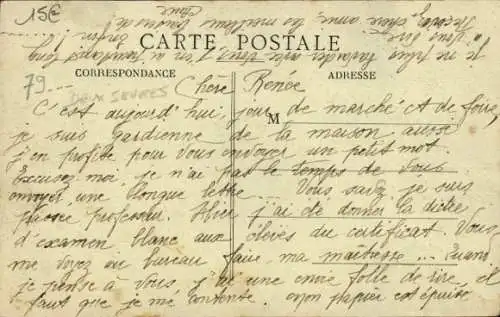 15€
Recevez, chère amie, les meilleurs
CARTE POSTALE
CORRESPONDANCE
ADRESSE
79...
DEUX SEVRES
Chère Renée
M
C'est aujourd'hui, jour de marché et de foire,
je suis gardienne de la maison aussi
j'en profite pour vous envoyer un petit mot.
Excusez moi, je n'ai pas le temps de vous
envoyer une longue lettre... Vous savez je suis
passée professeur. Hier j'ai été donner la dictée
d'examen blanc aux élèves du certificat. Vous
me voyez au bureau faire ma maîtresse... Quand
je pense à vous, j'ai une envie folle de rire, il
faut que je me contente. Mon papier est épuisé